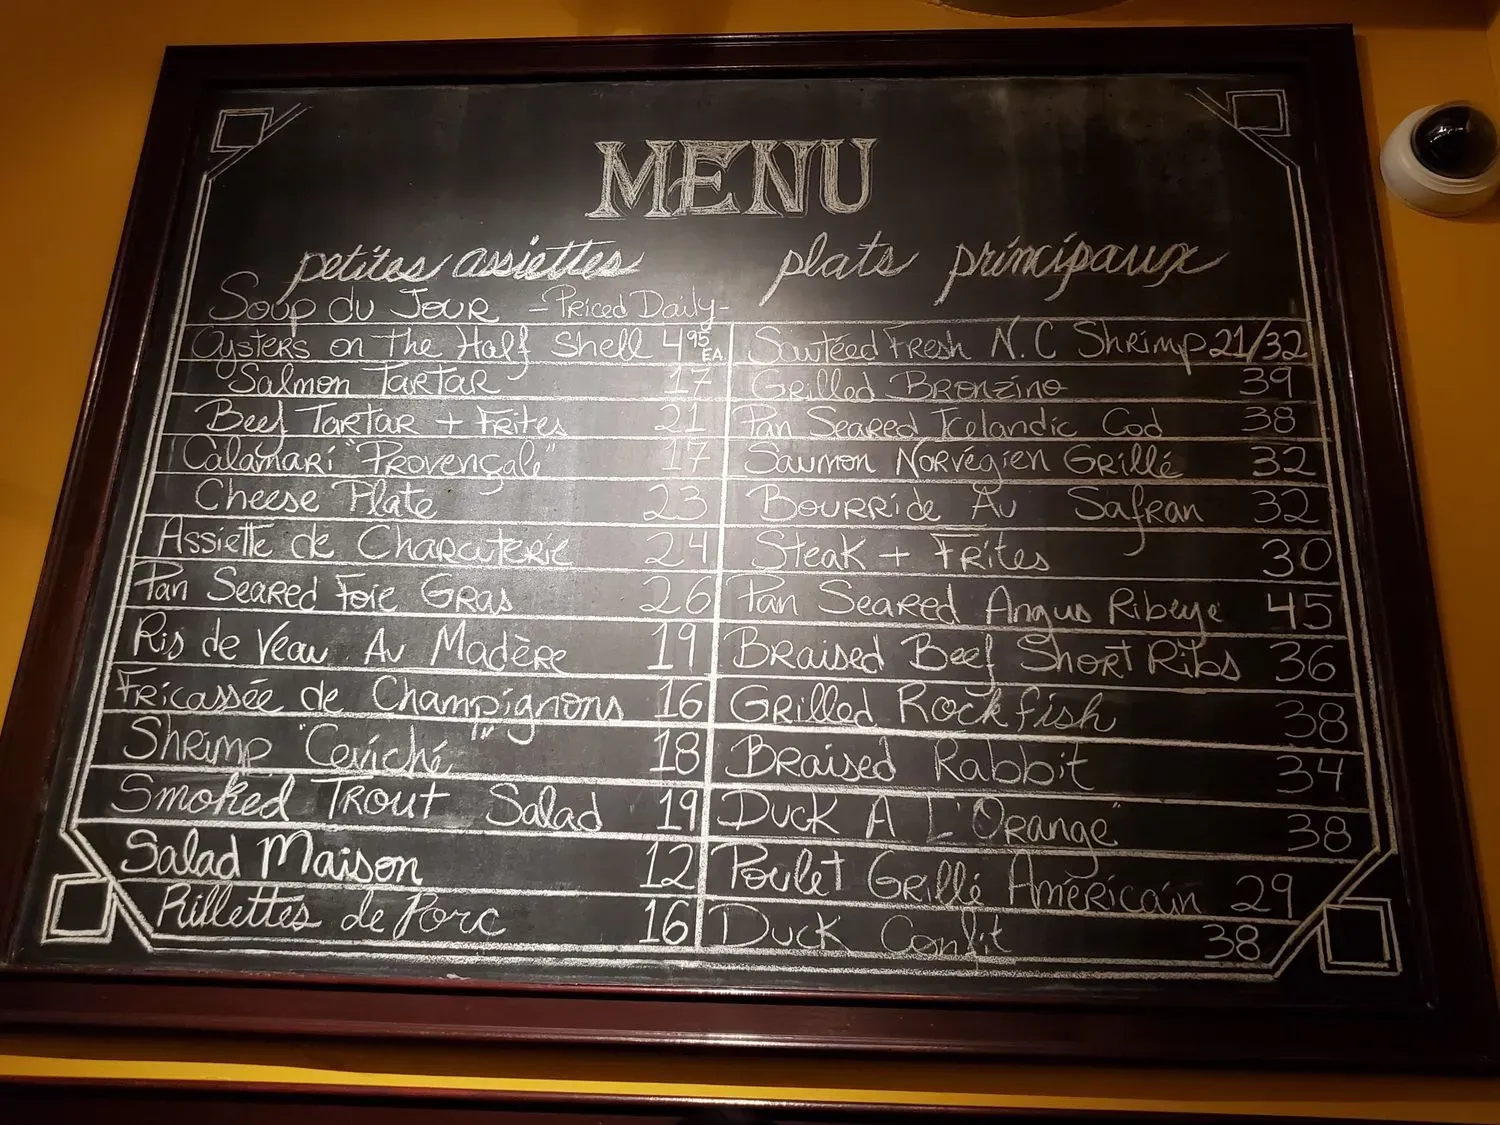 MENU
petites assiettes
Soup du Jour -Priced Daily-
Oysters on the Half Shell 4 95 EA.
Salmon Tartar 17
Beef Tartar + Frites 21
Calamari "Provençale" 17
Cheese Plate 23
Assiette de Characuterie 24
Pan Seared Foie Gras 26
Ris de Veau Au Madère 19
Fricassée de Champignons 16
Shrimp "Ceviché" 18
Smoked Trout Salad 19
Salad Maison 12
Rillettes de Porc 16
plats principaux
Sautéed Fresh N.C Shrimp 21/32
Grilled Bronzino 39
Pan Seared Icelandic Cod 38
Saumon Norvégien Grillé 32
Bourride Au Safran 32
Steak + Frites 30
Pan Seared Angus Ribeye 45
Braised Beef Short Ribs 36
Grilled Rockfish 38
Braised Rabbit 34
Duck A L'Orange" 38
Poulet Grillé Américain 29
Duck Confit 38